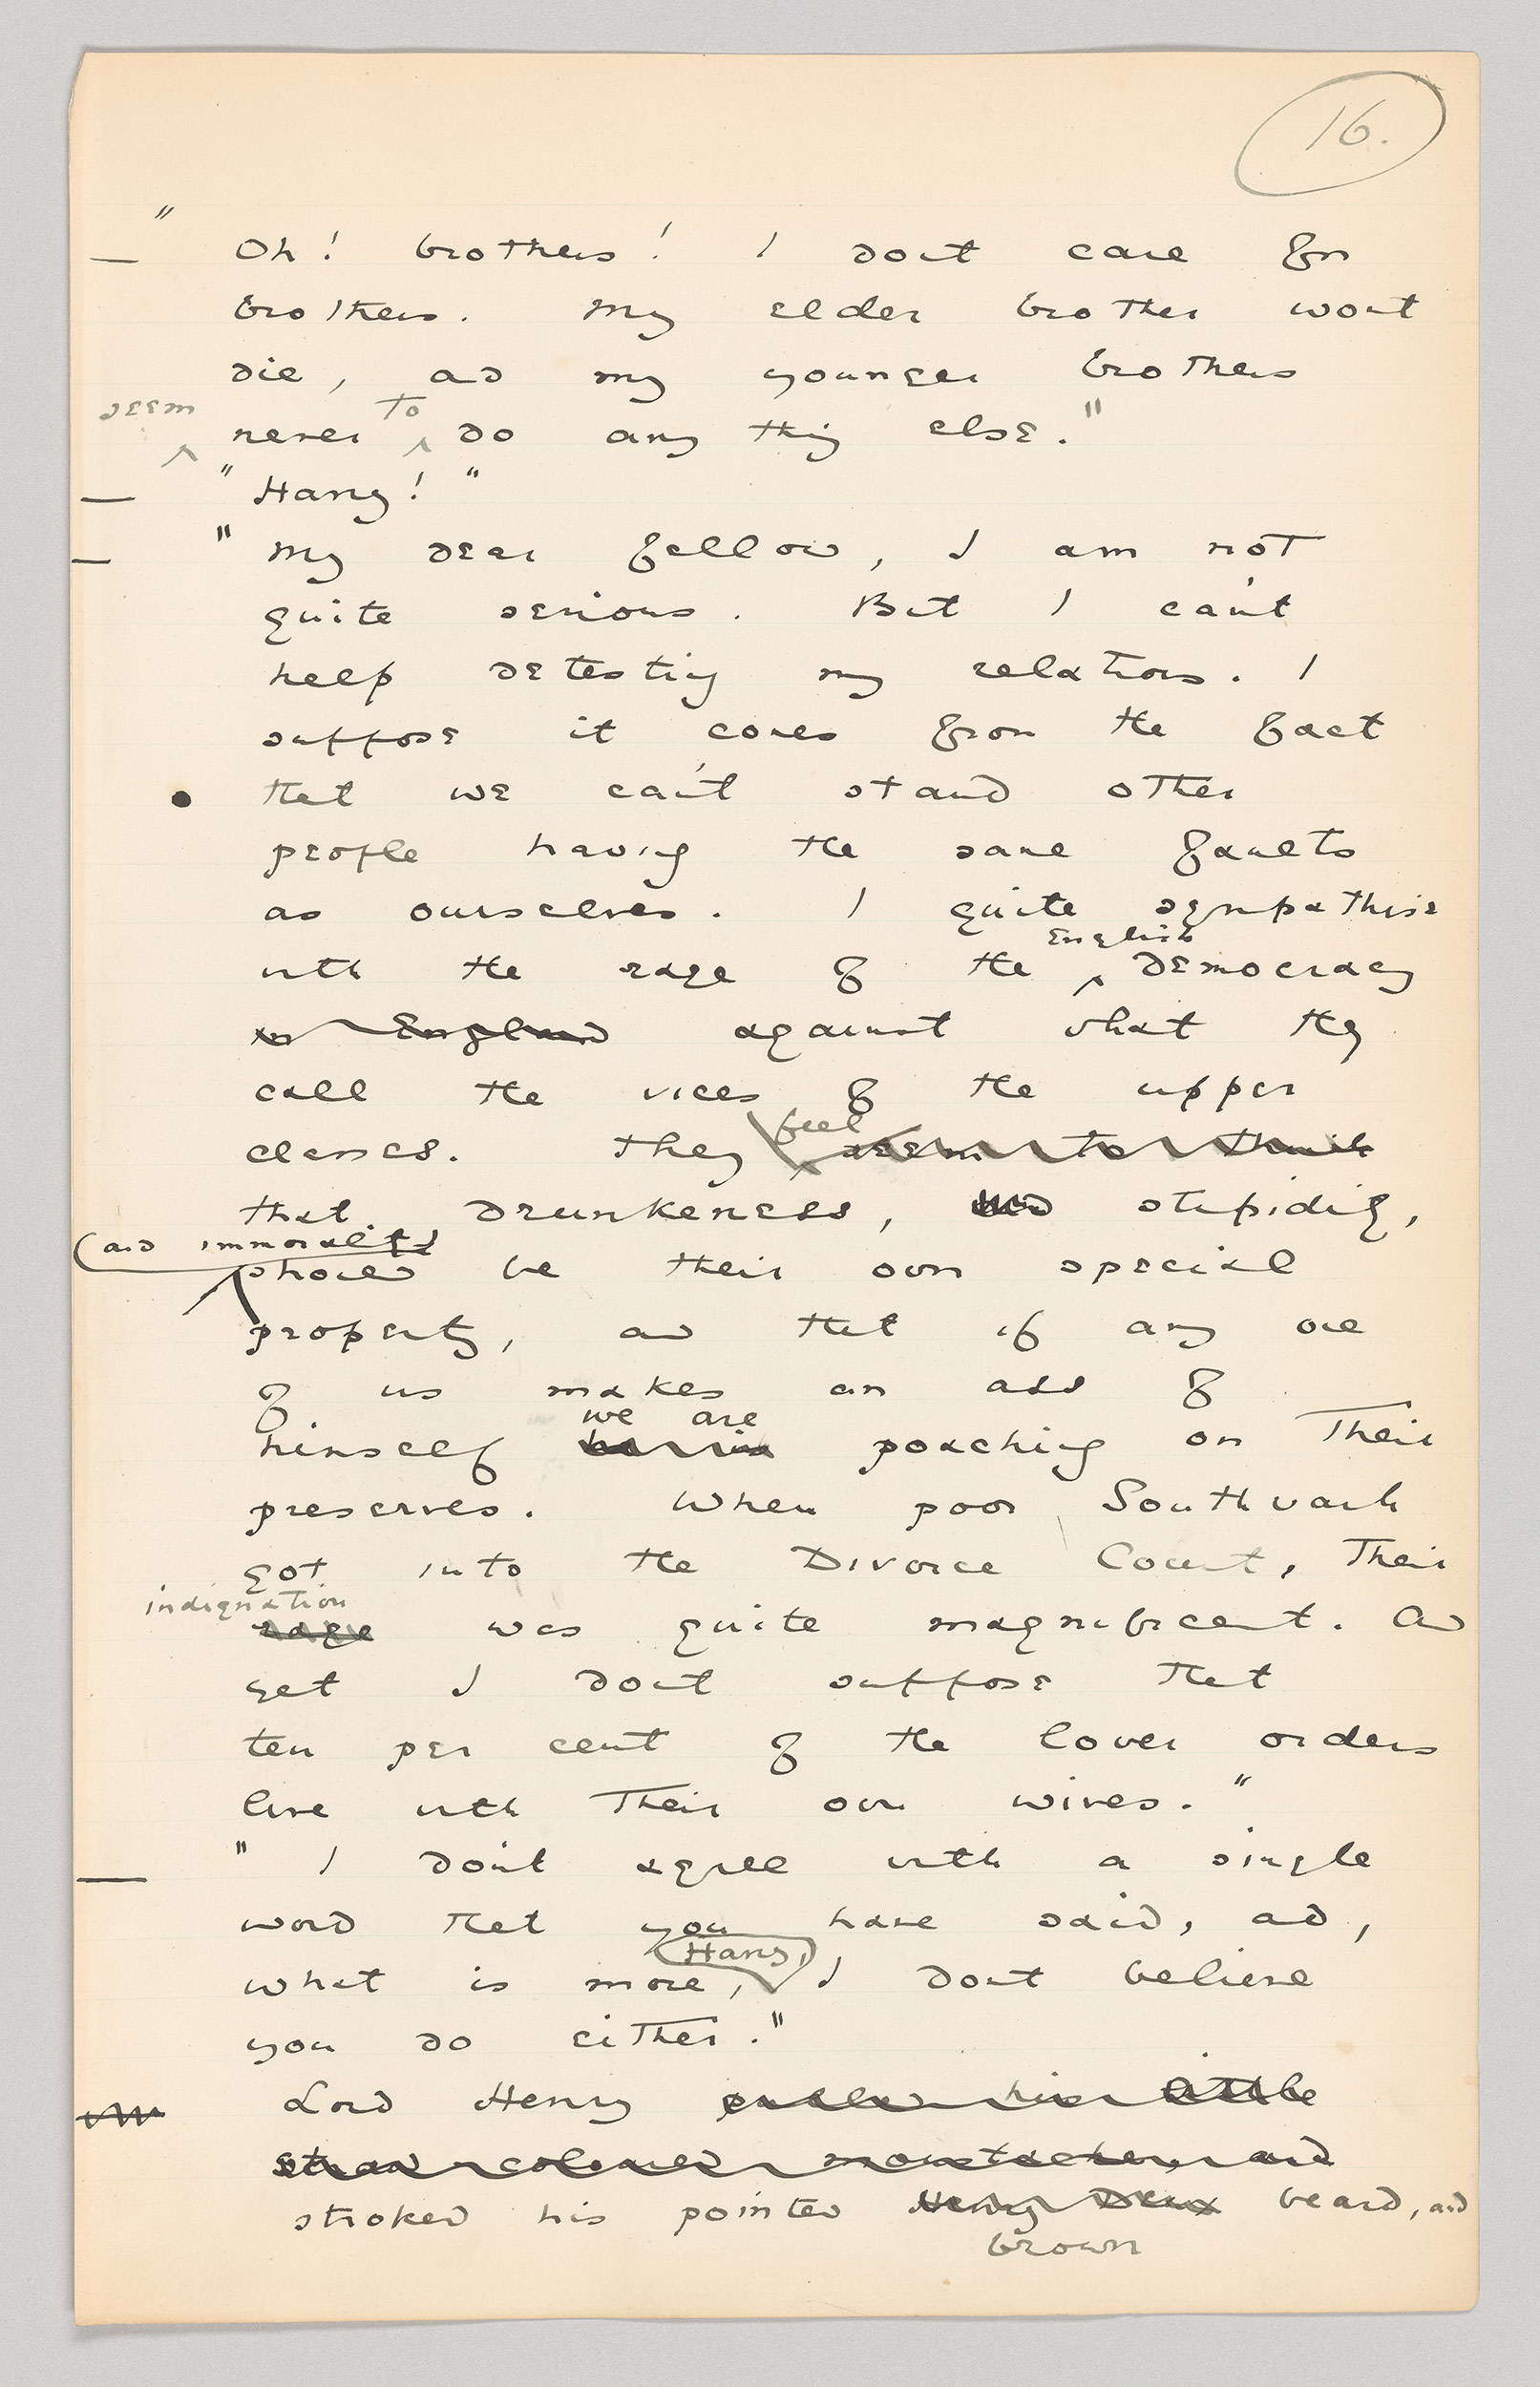 16.
" Oh! brothers! I dont care for
brothers. My elder brother wont
die, and my younger brothers
seem never to do any thing else."
"Harry!"
"My dear fellow, I am not
quite serious. But I can't
help detesting my relations. I
suppose it comes from the fact
that we can't stand other
people having the same faults
as ourselves. I quite sympathise
with the rage of the English democracy
in England against what they
call the vices of the upper
classes. They feel seem to think
that drunkeness, and stupidity,
(and immorality) should be their own special
property, and that if any one
of us makes an ass of
himself he is we are poaching on their
preserves. When poor Southwark
got into the Divorce Court, their
rage indignation was quite magnificent. And
yet I dont suppose that
ten per cent of the lower orders
live with their own wives."
" I don't agree with a single
word that you have said, and,
what is more, Harry, I dont believe
you do either."
Lord Henry pulled his little
straw coloured moustache, and
stroked his pointed beard, and
brown